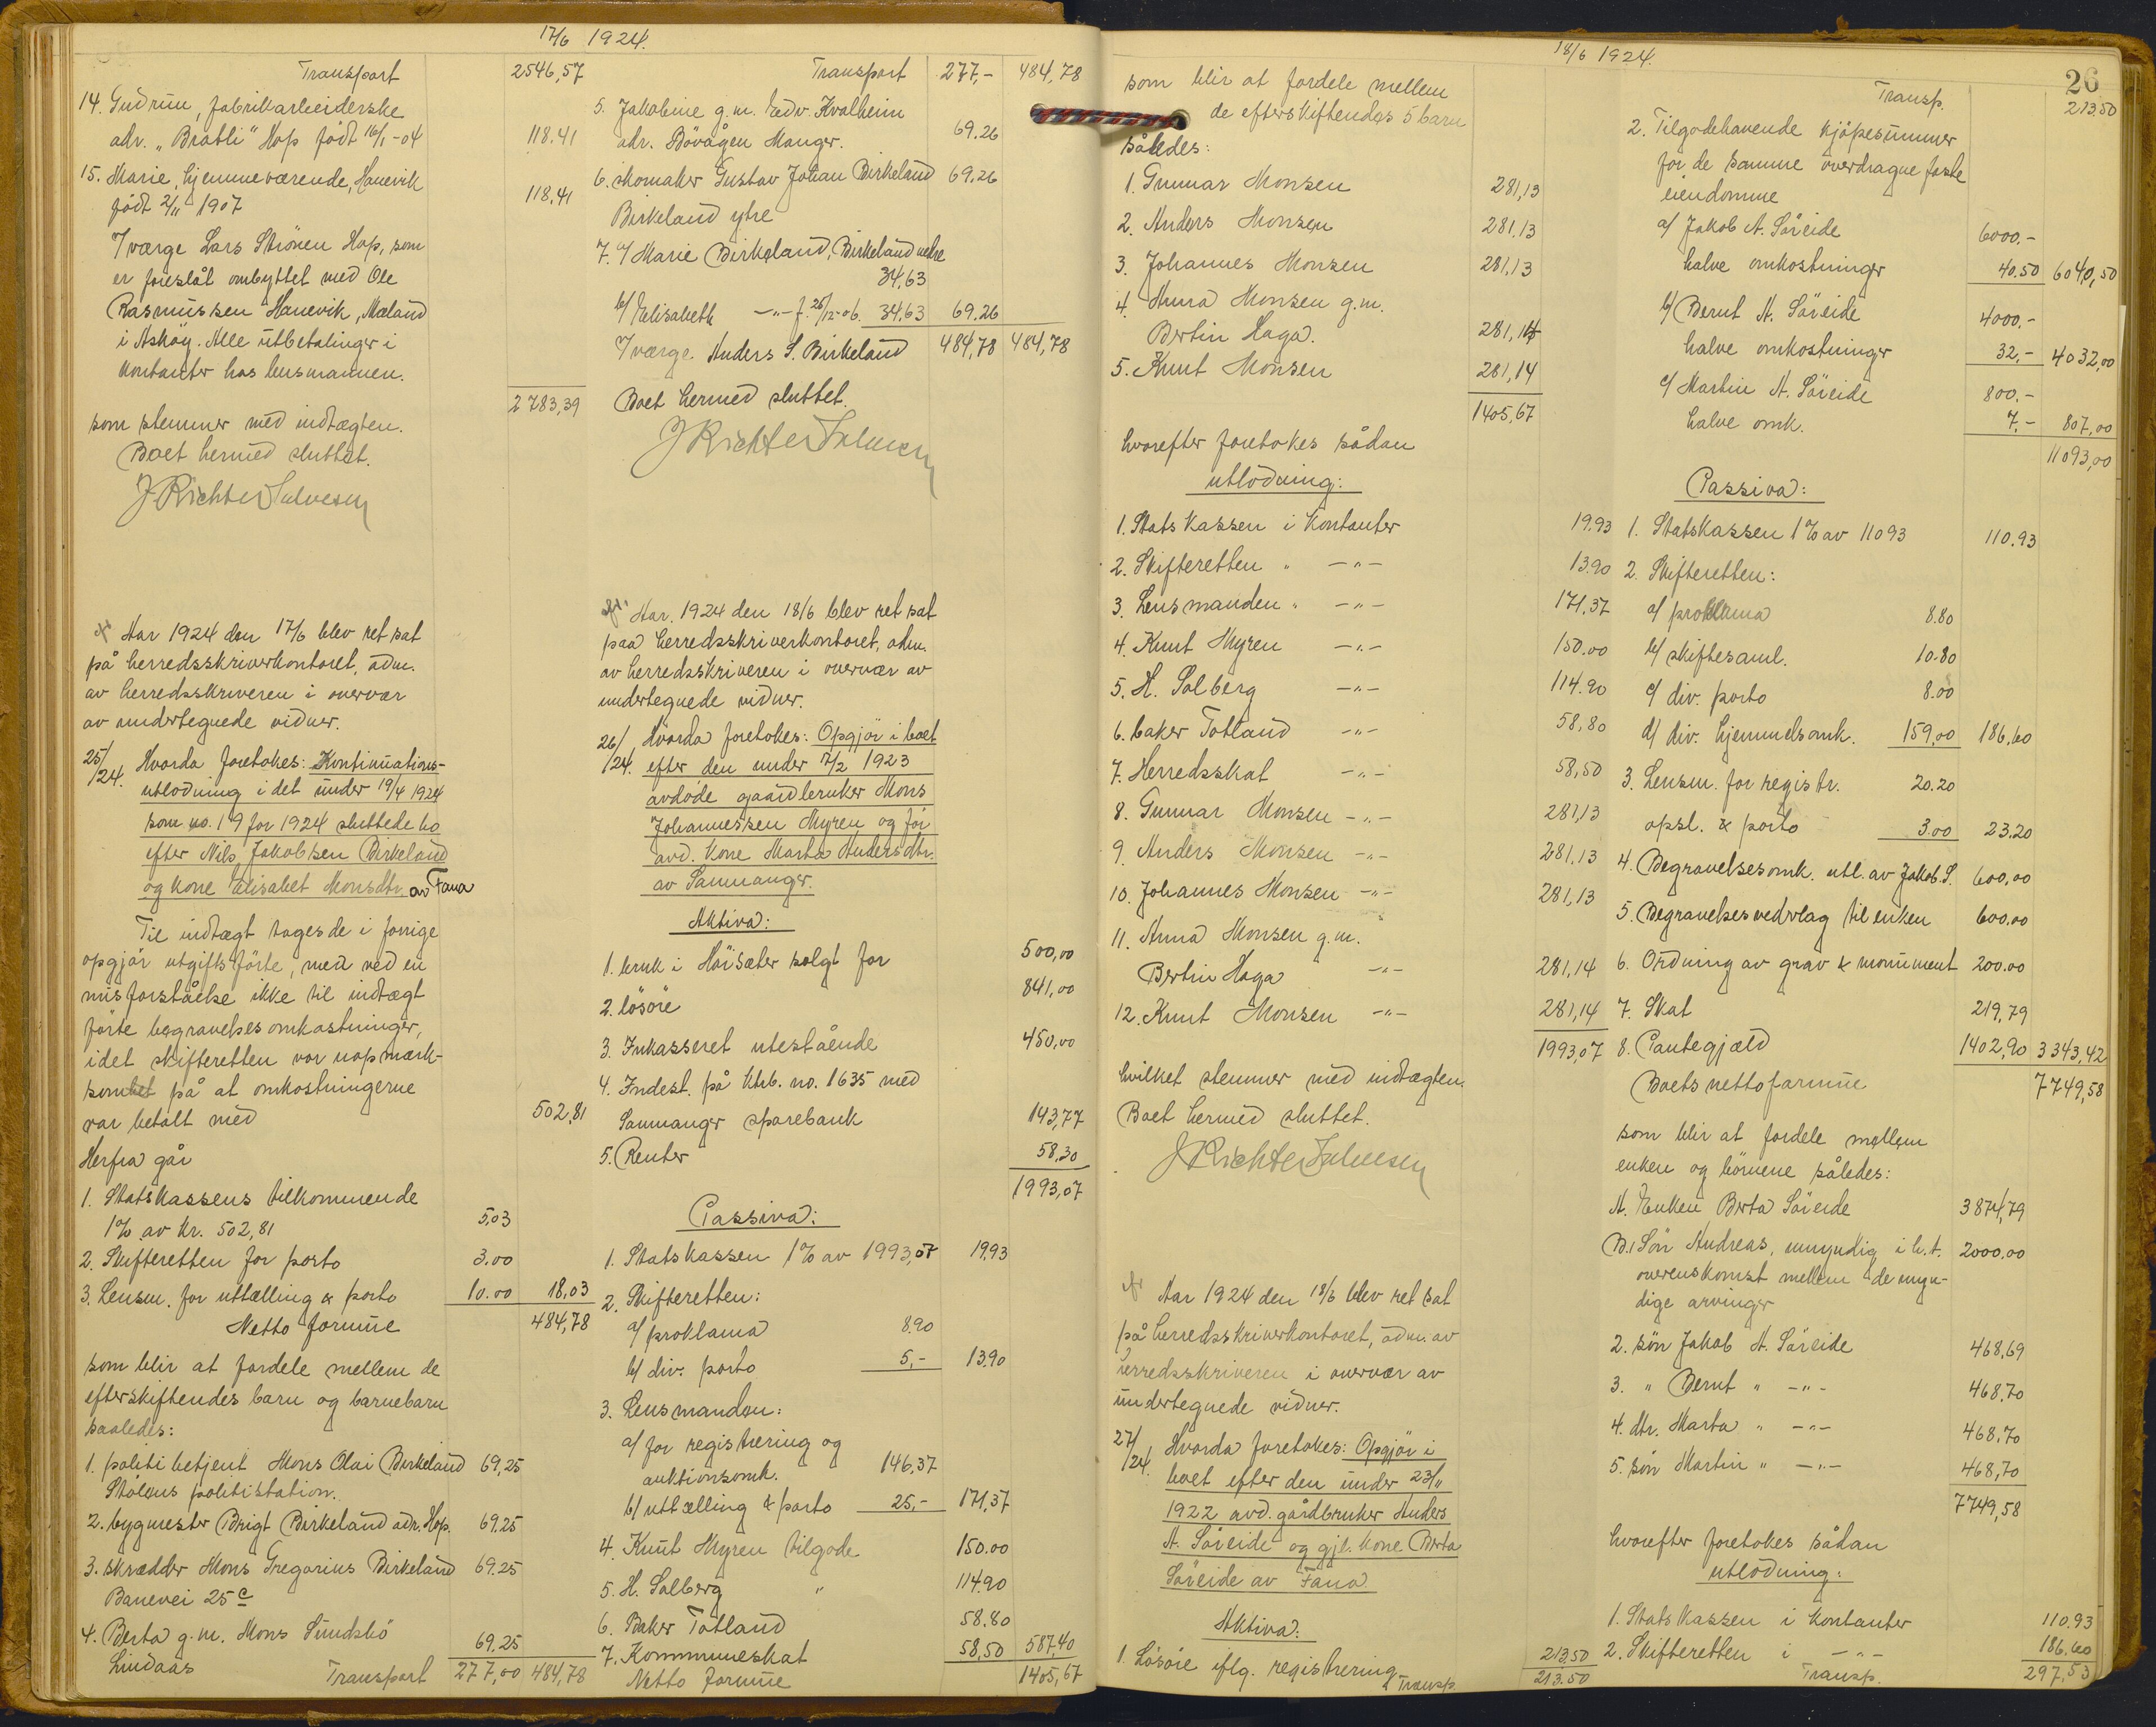 17/6 1924.
Transport 2546,57
14. Gudrun, fabrikarbeiderske
adr. "Bratli" Hop født 16/1-04 118.41
15. Marie, hjemmeværende, Hanevik
født 2/11 1907 118.41
Værge Lars Strönen Hop, som
er foreslåt ombyttet med Ole
Rasmussen Hanevik, Mæland
i Asköy. Alle utbetalinger i
kontanter hos lensmannen.
2783,39
som stemmer med indtægten.
Boet hermed sluttet.
J Richter Salvesen
Aar 1924 den 17/6 blev ret sat
på herredsskriverkontoret, adm.
av herredsskriveren i overvær
av undertegnede vidner.
25/24. Hvorda foretokes: Kontinuations-
utlodning i det under 19/4 1924
som no. 19 for 1924 sluttede bo
efter Nils Jakobsen Birkeland
og kone Elisabet Monsdtr. av Fana
Til indtægt tages de i forrige
opgjör utgiftsförte, men ved en
misforståelse ikke til indtægt
förte begravelsesomkostninger,
idet skifteretten var uopmærk-
somhet på at omkostningerne
var betalt med 502,81
Herfra går
1. Statskassens tilkommende
1% av kr. 502,81 5.03
2. Skifteretten for porto 3.00
3. Lensm. for uttælling & porto 10.00 18,03
Netto formue 484,78
som blir at fordele mellem de
efterskiftendes barn og barnebarn
saaledes:
1. politibetjent Mons Olai Birkeland 69,25
Stölens politistation.
2. bygmester Brigt Birkeland adr. Hop. 69.25
3. skrædder Mons Gregorius Birkeland 69.25
Banevei 25c
4. Berta g.m. Mons Sundsbö 69.25
Lindaas
Transport 277,00 484,78
Transport 277,- 484,78
5. Jakobine g.m. Edv. Kvalheim
adr. Bövågen Manger. 69.26
6. skomaker Gustav Johan Birkeland 69.26
Birkeland ytre
7. a/ Marie Birkeland, Birkeland vestre
34,63
b/ Elisabeth -"- f. 26/12-06. 34,63 69.26
Værge Anders S. Birkeland 484,78 484,78
Boet hermed sluttet.
J Richter Salvesen
Aar. 1924 den 18/6 blev ret sat
paa herredsskriverkontoret, adm.
av herredsskriveren i overvær av
undertegnede vidner.
26/24. Hvorda foretokes: Opgjör i boet
efter den under 7/2 1923
avdöde gaardbruker Mons
Johannessen Myren og för
avd. kone Marta Andersdtr.
av Samnanger.
Aktiva:
1. bruk i Höisæter solgt for 500,00
2. lösöre 841,00
3. Inkasseret utestående 450,00
4. Indest. på ktrb. no. 1635 med
Samnanger sparebank 143,77
5. Renter 58,30
1993,07
Passiva:
1. Statskassen 1% av 1993,07 19.93
2. Skifteretten:
a/ proklama 8.90
b/ div. porto 5,- 13.90
3. Lensmanden:
a/ for registrering og
auktionsomk. 146,37
b/ uttælling & porto 25,- 171,37
4. Knut Myren tilgode 150.00
5. H. Solberg " 114.90
6. Baker Totland 58.80
7. Kommuneskat 58,50 587,40
Netto formue 1405,67
18/6 1924.
som blir at fordele mellem
de efterskiftendes 5 barn
således:
1. Gunnar Monsen 281,13
2. Anders Monsen 281,13
3. Johannes Monsen 281,13
4. Anna Monsen g.m.
Bertin Haga. 281,14
5. Knut Monsen 281,14
1405,67
hvorefter foretokes sådan
utlodning:
1. Statskassen i kontanter 19.93
2. Skifteretten " -"- 13.90
3. Lensmanden " -"- 171,37
4. Knut Myren -"- 150.00
5. H. Solberg -"- 114.90
6. baker Totland -"- 58,80
7. Herredsskat -"- 58,50
8. Gunnar Monsen -"- 281,13
9. Anders Monsen -"- 281,13
10. Johannes Monsen -"- 281,13
11. Anna Monsen g.m.
Bertin Haga -"- 281,14
12. Knut Monsen -"- 281,14
1993,07
hvilket stemmer med indtægten.
Boet hermed sluttet.
J Richter Salvesen
Aar 1924 den 18/6 blev ret sat
på herredsskriverkontoret, adm. av
herredsskriveren i overvær av
undertegnede vidner.
27/24. Hvorda foretokes: Opgjör i
boet efter den under 23/11
1922 avd. gårdbruker Anders
A. Söreide og gjl. kone Berta
Söreide av Fana
Aktiva:
1. Lösöre iflg. registrering 213.50
Transp. 213.50
26
Transp. 213.50
2. Tilgodehavende kjöpesummer
for de samme overdragne faste
eiendomme
a/ Jakob A. Söreide 6000,-
halve omkostninger 40.50 6040,50
b/ Bernt A. Söreide 4000.-
halve omkostninger 32,- 4032,00
c/ Martin A. Söreide 800.-
halve omk. 7,- 807,00
11093,00
Passiva:
1. Statskassen 1% av 11093 110.93
2. Skifteretten:
a/ proklama 8.80
b/ skiftesaml. 10.80
c/ div. porto 8.00
d/ div. hjemmelsomk. 159,00 186,60
3. Lensm. for registr. 20.20
opsl. & porto 3.00 23.20
4. Begravelsesomk. utl. av Jakob S. 600,00
5. Begravelsesvederlag til enken 600.00
6. Ordning av grav & monument 200.00
7. Skat 219,79
8. Pantegjæld 1402,90 3343,42
Boets nettoformue 7749,58
som blir at fordele mellem
enken og börnene således:
A. Enken Berta Söreide 3874,79
B. 1 Sön Andreas, umyndig i h.t. 2000,00
overenskomst mellem de myn-
dige arvinger
2. sön Jakob A. Söreide 468,69
3. " Bernt " -"- 468.70
4. dtr. Marta " -"- 468,70
5. sön Martin " -"- 468,70
7749,58
hvorefter foretokes sådan
utlodning:
1. Statskassen i kontanter 110.93
2. Skifteretten i -"- 186.60
Transp. 297,53